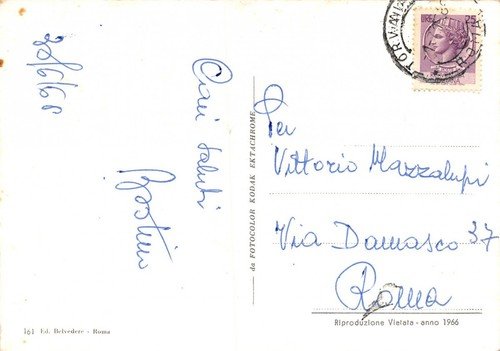 28/6/68
Cari saluti
LIRE 25
TORVAIANICA
da FOTOCOLOR KODAK EKTACHROME
Per
Vittorio Mazzalupi
Via Damasco 37
Roma
161 Ed. Belvedere - Roma
Riproduzione Vietata - anno 1966